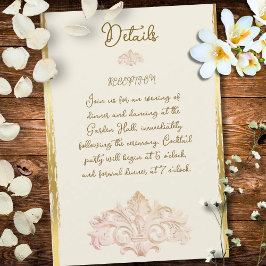 Details
RECEPTION
Join us for an evening of
dinner and dancing at the
Garden Hall, immediately
following the ceremony. Cocktail
party will begin at 5 o'clock,
and formal dinner at 7 o'clock.